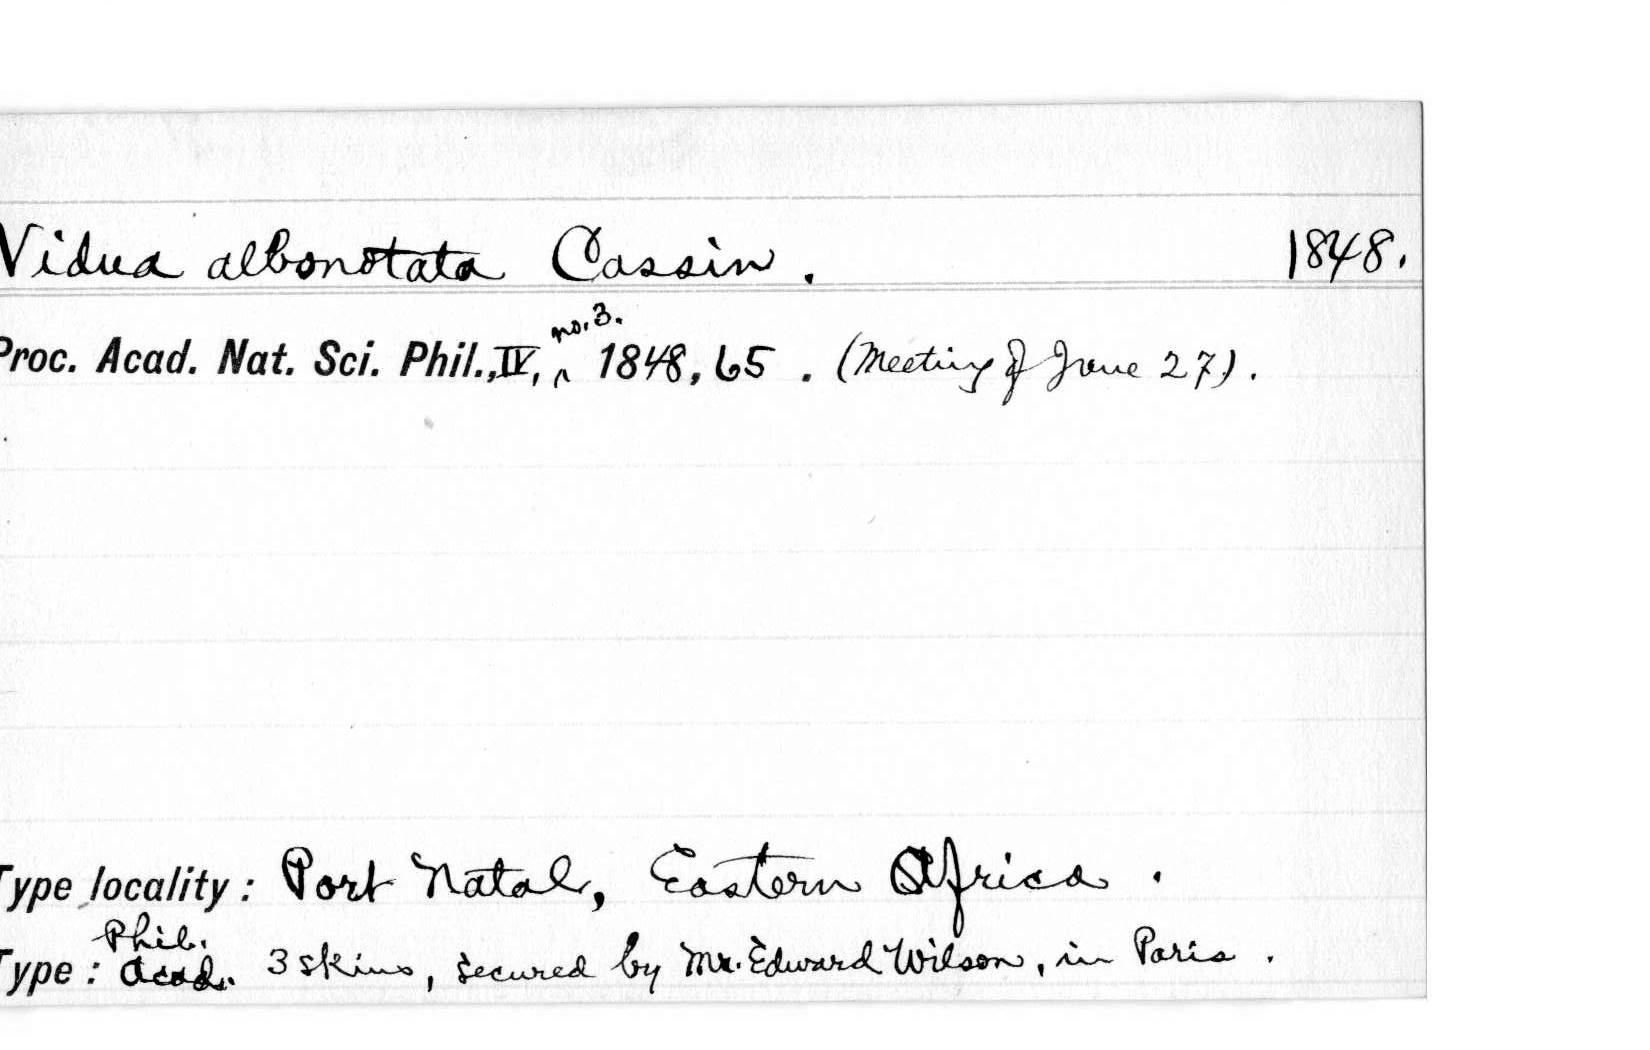 Vidua albonotata Cassin. 1848.
Proc. Acad. Nat. Sci. Phil., IV, no. 3. 1848, 65. (Meeting of June 27).
Type locality: Port Natal, Eastern Africa.
Phil.
Type: Acad. 3 skins, secured by Mr. Edward Wilson, in Paris.